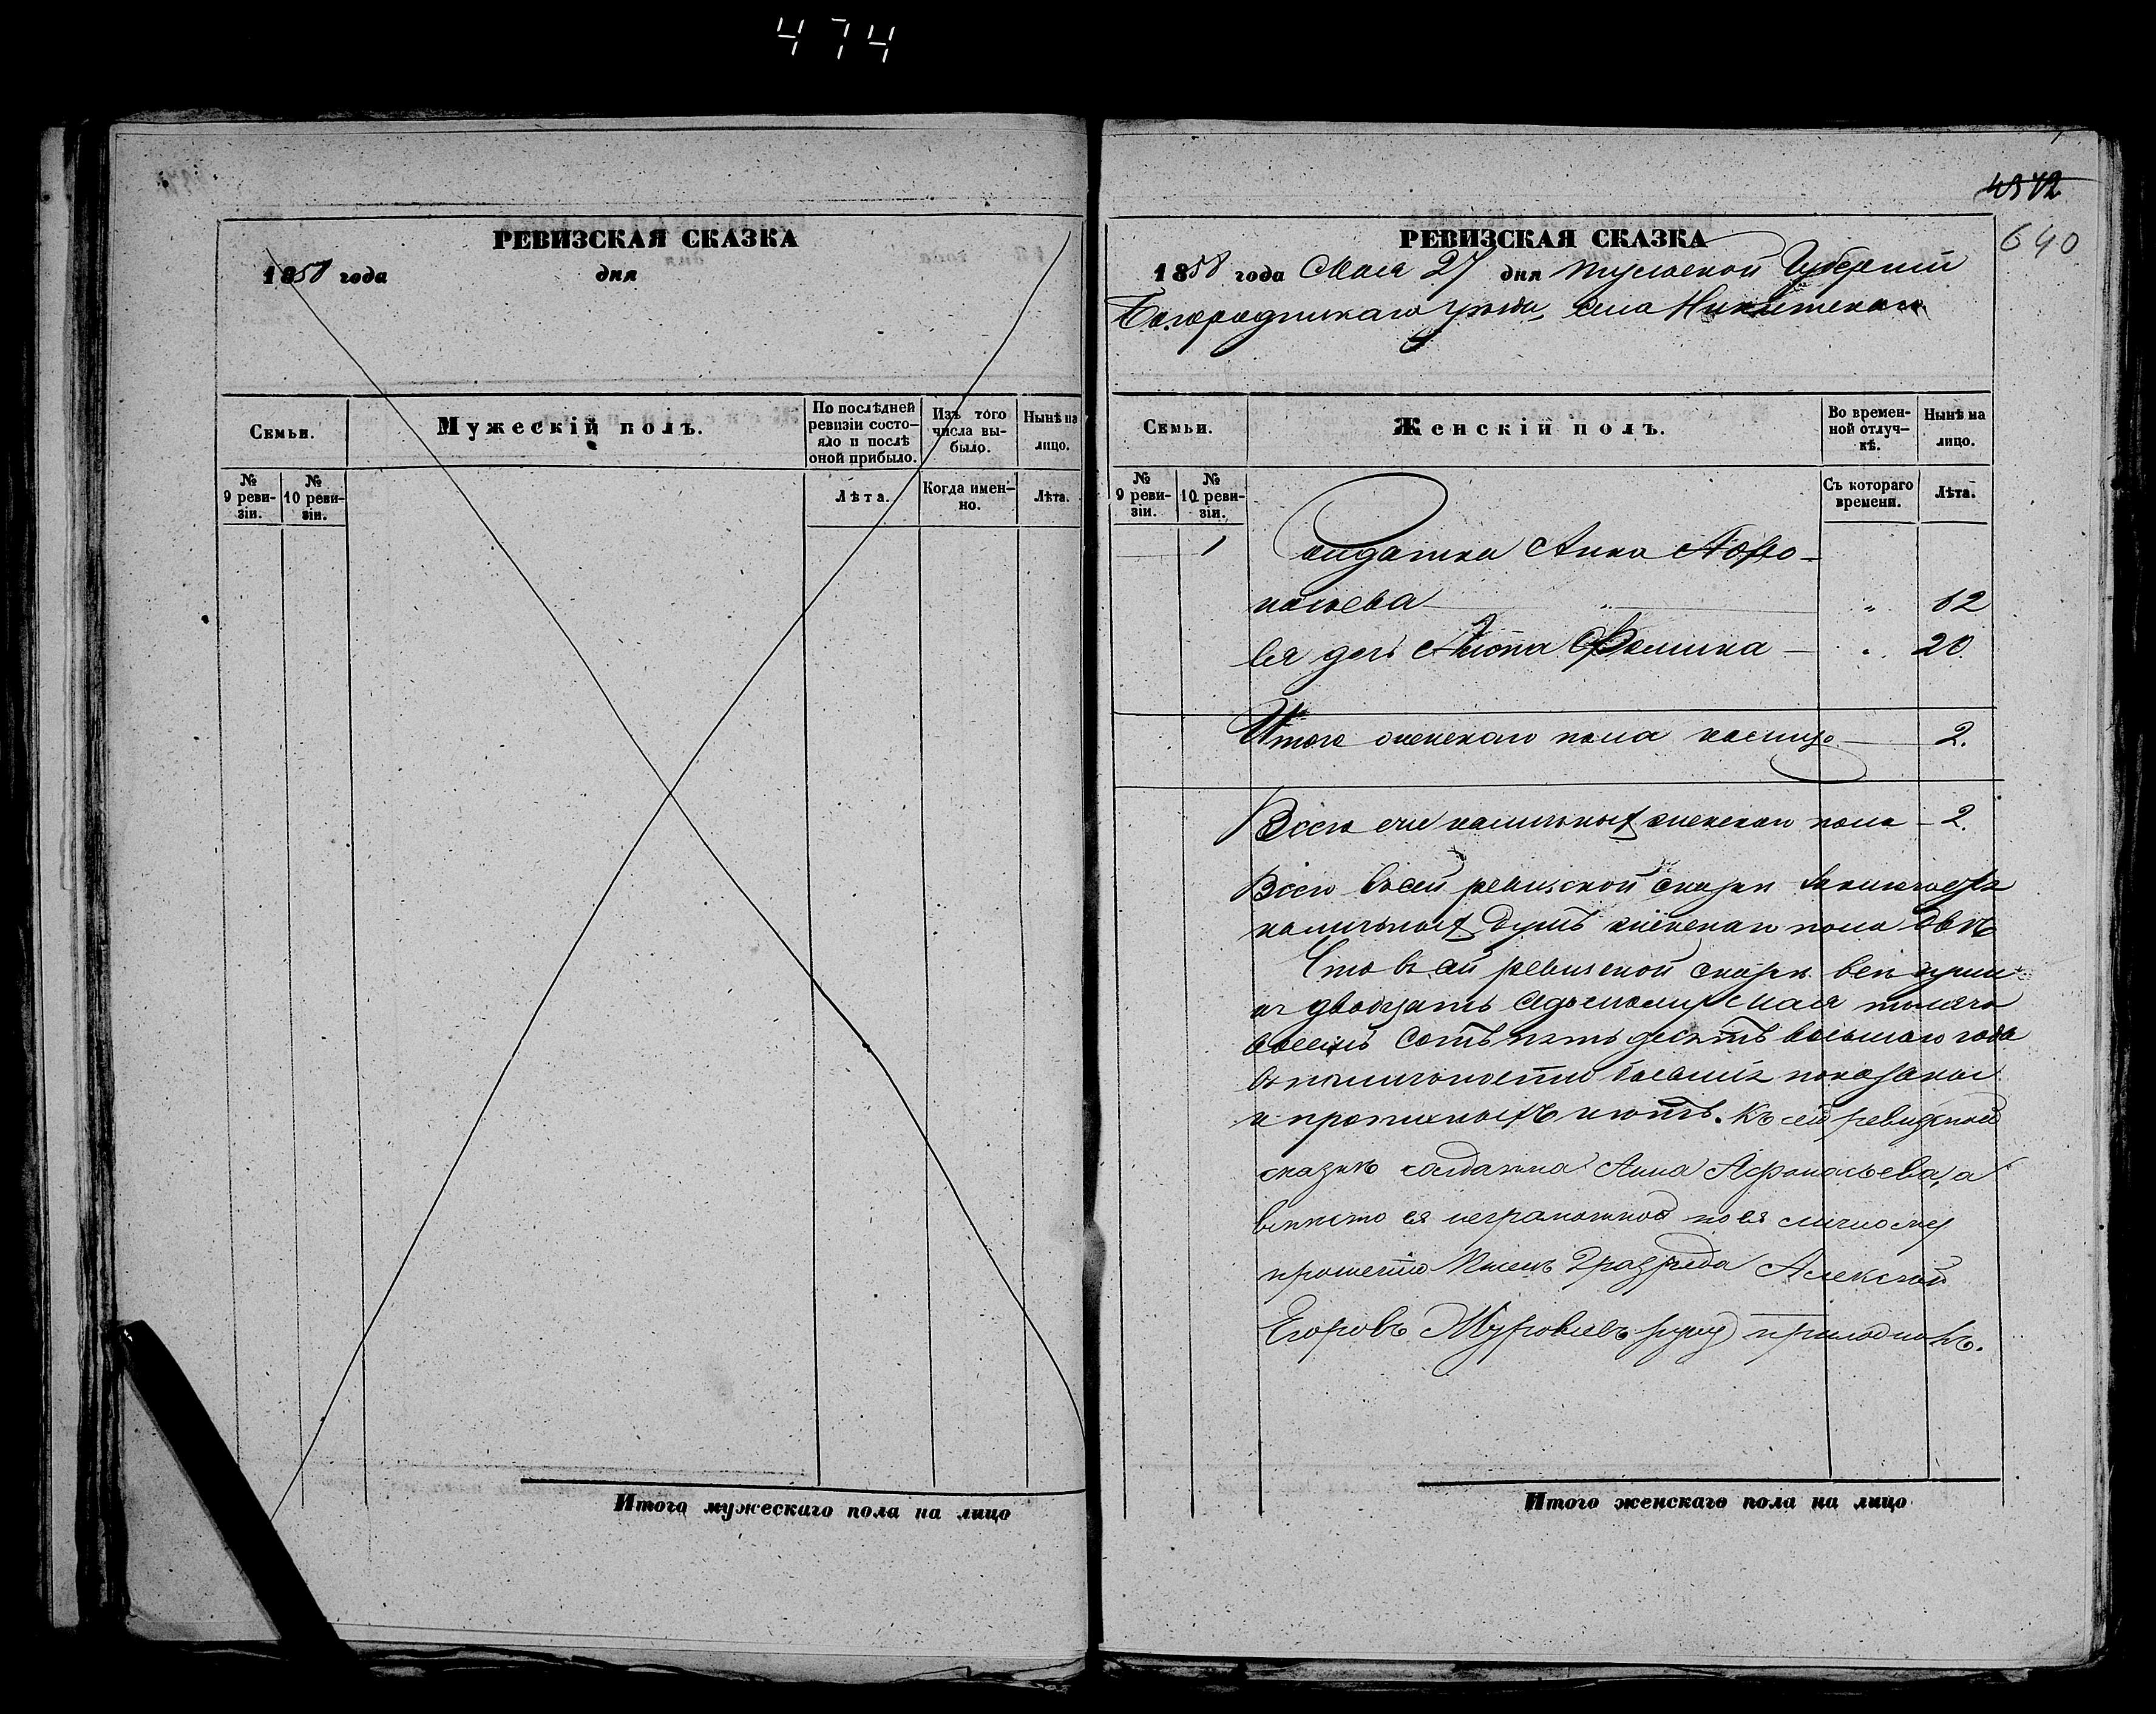 474
РЕВИЗСКАЯ СКАЗКА
1858 года дня
Семьи.
Мужескій полъ.
По послѣдней ревизіи состояло и послѣ оной прибыло.
Изъ того числа выбыло.
Нынѣ на лицо.
№ 9 ревизіи.
№ 10 ревизіи.
Лѣта.
Когда именно.
Лѣта.
Итого мужескаго пола на лицо
640
РЕВИЗСКАЯ СКАЗКА
1858 года Мая 27 дня Тульской Губерніи
Богородицкаго уѣзда, села Никитскаго
Семьи.
Женскій полъ.
Во временной отлучкѣ.
Нынѣ на лицо.
№ 9 ревизіи.
№ 10 ревизіи.
Съ котораго времени.
Лѣта.
1 Солдатка Анна Афо-
насьева " 62
Ея дочь Фомина " 20
Итого женскаго пола налицо 2.
Всего наличныхъ женскаго пола 2.
Всего въ сей ревизской сказкѣ заключается
наличныхъ душъ женскаго пола двѣ
Что въ сей ревизской сказкѣ всѣ души
къ двадцать седьмому Мая тысяча
восемь сотъ пять десятъ восьмаго года
въ наличности показаны
и нѣтъ. Къ сей ревизской
сказкѣ солдатка Анна Афонасьева, а
вмѣсто ея неграмотной по ея личному
прошенію Писецъ 2 разряда Алексѣй
Егоровъ руку приложилъ.
Итого женскаго пола на лицо